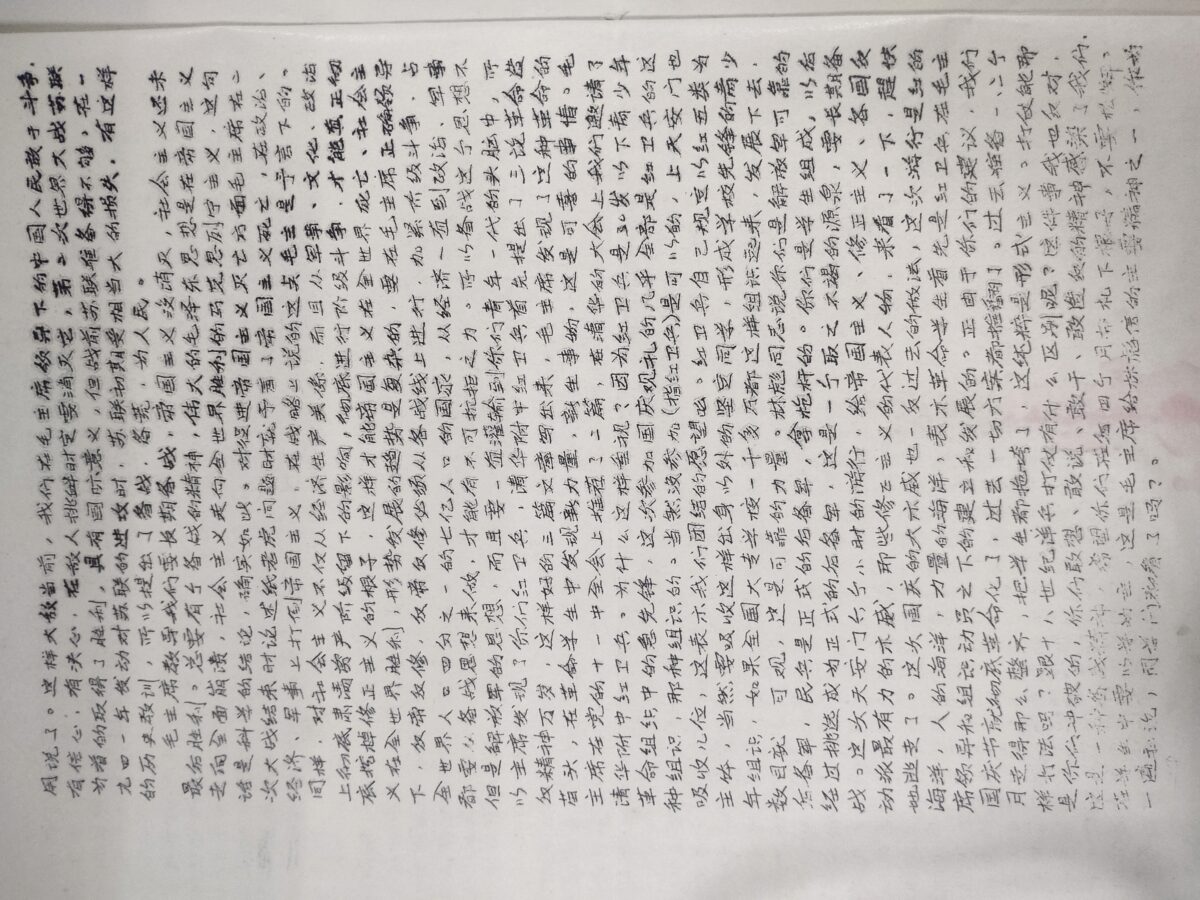 用说了。这样大敌当前，我们在毛主席领导下的中国人民敢于斗争，
有信心，有决心，在敌人挑衅时定要消灭它，第二次世界大战苏联
为首的取得了胜利，具有国际意义，但战前苏联准备得不够，在一
九四一年发动对苏联的进攻时，苏联初期受相当大的损失，有这样
的历史教训，所以提出了备战，备荒，为人民。
毛主席教导我们要长期备战，帝国主义没消灭，社会主义还未
最后胜利。总要有个备战的精神，伟大的毛泽东思想是在帝国主义
走向全面崩溃，社会主义走向全世界胜利的马克思列宁主义，这句
话是科学的结论，确实如此。对促进帝国主义灭亡方面毛主席在二
次大战结束时论述纸老虎问题时就予言了帝国主义死亡，在政治、
经济、军事上打倒帝国主义，在战略上说的这点毛主是予言下的。
同样，对社会主义不仅从经济生产关系，而且从军事、文化、政治
上彻底肃清资产阶级留下的影响，彻底进行阶级斗争，才能真正彻
底挖掉修正主义的根子，这样才能帝国主义在全世界死亡、社会主
义在全世界胜利，形势发展的趋势是复杂的，要在毛主席正确领导
下，反帝反修，反帝反修必须从备战线上进行，加紧阶级斗争，占
全世界人口四分之一的七亿人口的国家，从经济一直到政治、军事
都要从备战思想来做，才能有不可抗拒之力。所以备战这个思想不
但是解放军的思想，而且要一直灌输到你们青年一代的头脑中，所
以主席发现了你们红卫兵，清华附中红卫兵首先提出了三论革命造
反精神万岁，这样好的三篇文章写出来，毛主席发现了这种革命的
苗头，在革命学生中发现新力量，新生事物，这是可喜的事情。毛
主席在党的十一中全会上推荐了二篇，在清华的大会上我们邀请了
清华附中红卫兵。为什么这样重视？因为红卫兵是30岁以下青少年
革命组织中的急先锋，这次参加国庆观礼的几乎全部是红卫兵的这
种组识，那种组识的。当然没参加（指红卫兵）是可以的，上天安门也
吸收几位，这表示我们团结的愿望吆。红卫兵自己规定以红五类为
主体，当然要吸收这样出身以外的坚定同学，形成学校先锋的青少
年组识，如果全国大专学校一千多万都这样组识起来，发展下去，
数目就 可观，这是可靠的力量。林彪同志说你们是解放军可靠的
后备军，民兵是正式的后备军，拿枪杆的。你们是学生组成，以后
经过挑选成为正式的后备军，这是一个取之不竭的源泉，要长期备
战。这次天安门六个小时的游行，给帝国主义、修正主义、各国反
动派最有力的示威，那些修正主义的代表人物，来看了一下，赶快
地逃走了。这次国庆的大示威也一反过去的做法，这次游行是红的
海洋，人的海洋，力量的海洋，表示革命学生首先是红卫兵在毛主
席领导和组识动员之下的建立和发展的。正由于你们的建议，我们
国庆节就彻底革命化了，过去一切方案都推翻了。过去准备一、二个
月走得那么整齐，把学生都拖垮了，这纯粹是形式主义。打仗能那
样打法吗？跟十八世纪洋兵打仗有什么区别呢？这件事我也反对，
是你们冲破的，你们敢想、敢说、敢干、敢造反的精神感染了我们，
这是一种备战精神，希望你们在这四个月都扎下根子，不要松懈。
在中要，这是毛主席给林彪信的主要精神之一，
一遍，同学们都看了吗？。